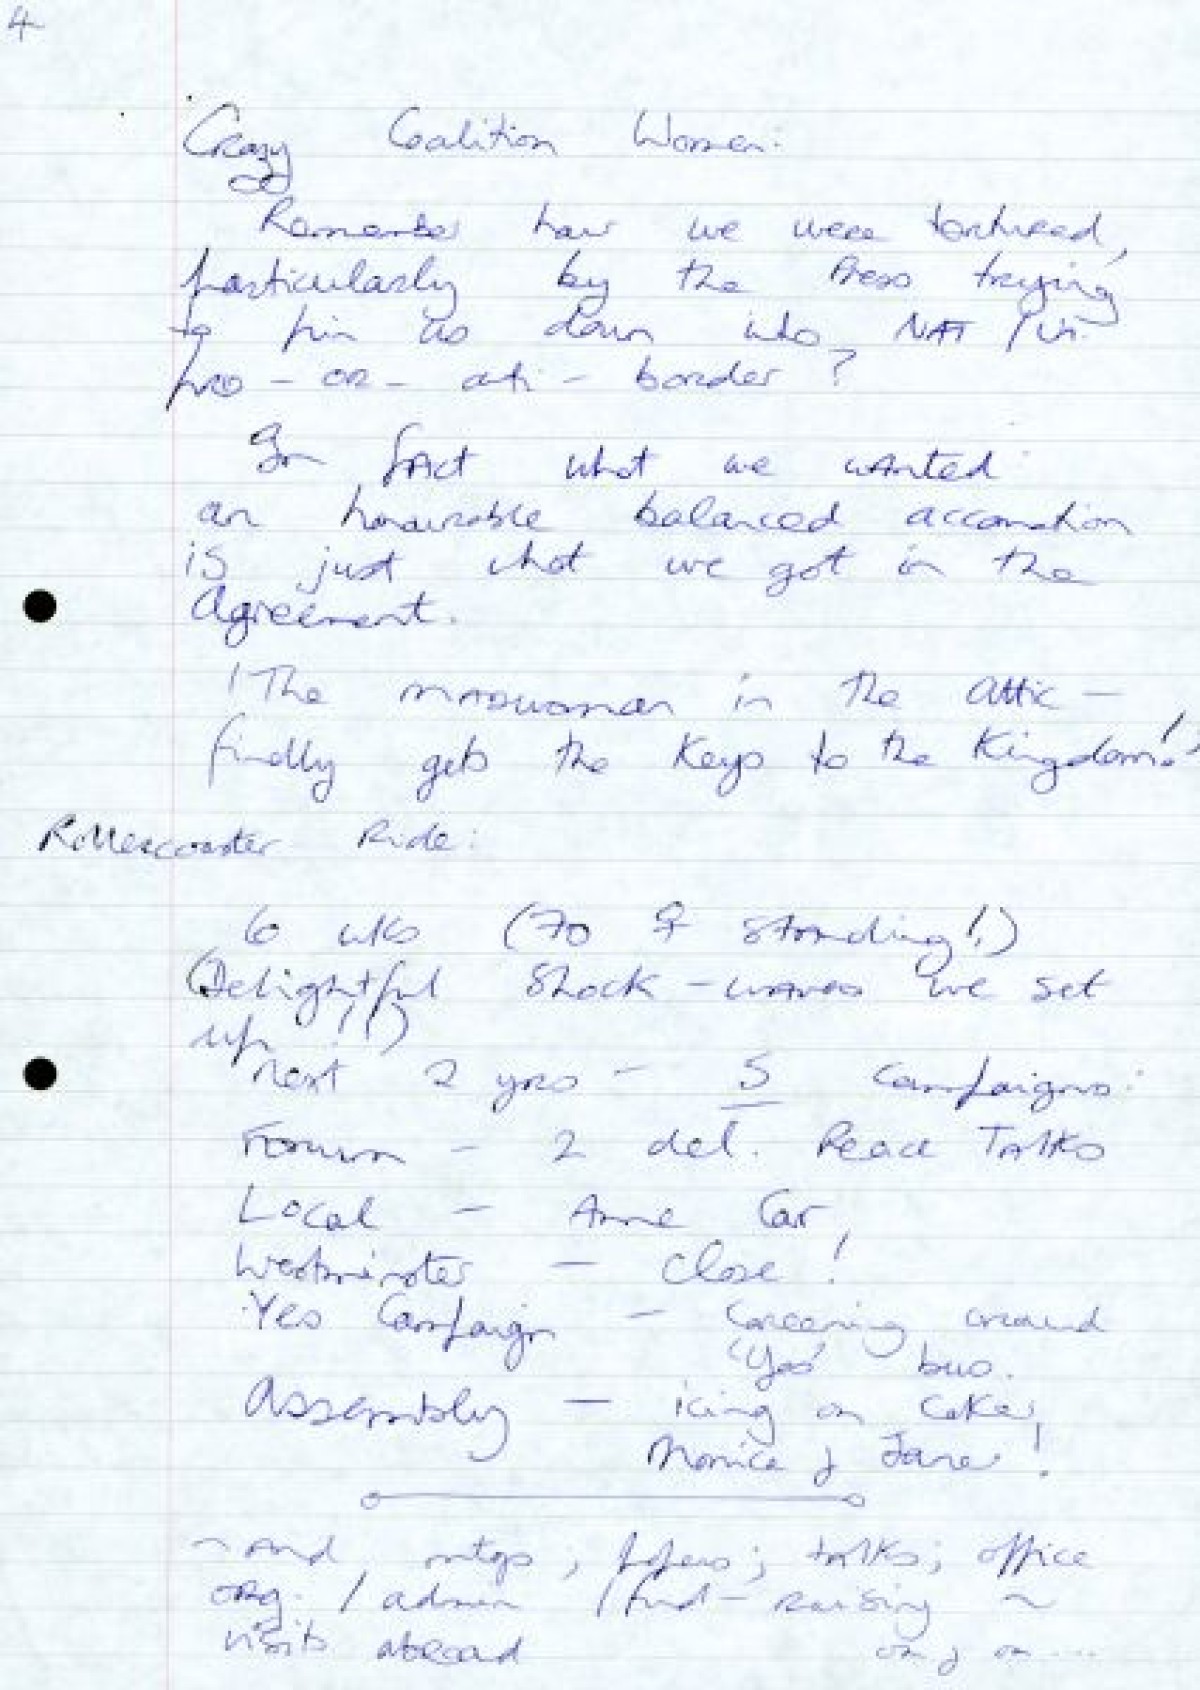 4
Crazy Coalition Women:
Remember how we were tortured,
particularly by the Press trying
to pin us down into NAT / Un.
pro - or - anti - border ?
In fact what we wanted
an honourable balanced accomation
is just what we got in the
Agreement.
! The madwoman in the attic -
finally gets the keys to the Kingdom!
Rollercoaster Ride:
6 wks (70 ♀ standing!!)
(Delightful shock-waves we set
up !!)
next 2 yrs - 5 campaigns:
Forum - 2 del. Peace Talks
Local - Anne Car
Westminster - close !
Yes Campaign - Careering around
'Yes' bus.
Assembly - icing on cake,
Monica & Jane !
~ And mtgs ; papers ; talks ; office
org. / admin / fund-raising ~
visits abroad on & on ....